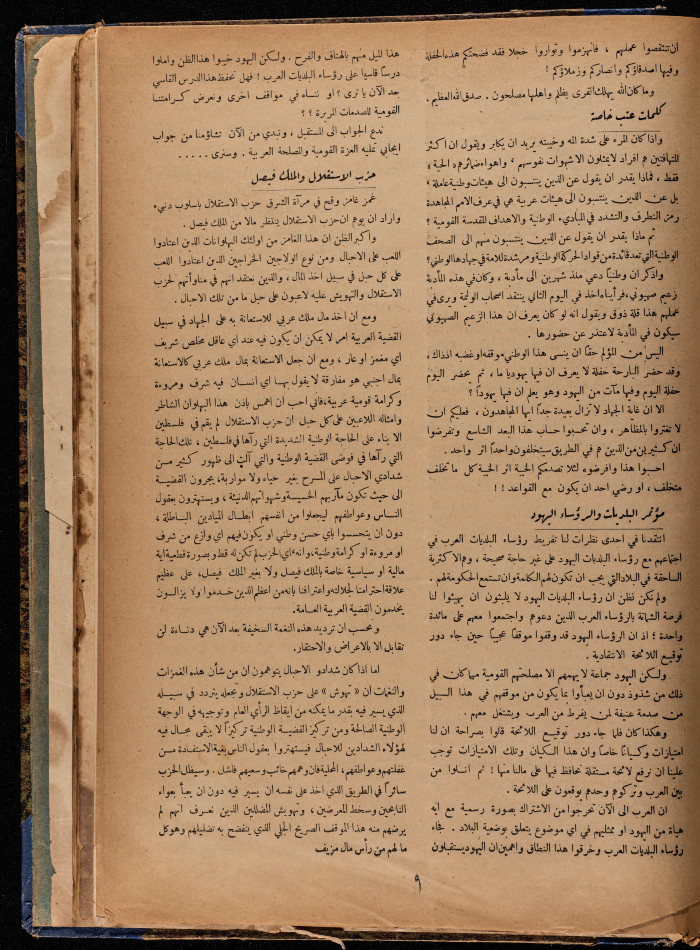 ان تنتقصوا عملهم ، فانهزموا وتواروا خجلا فقد فضحتكم هذه الحفلة
وفيها اصدقاؤكم وانصاركم وزملاؤكم !
وما كان الله يهلك القرى بظلم واهلها مصلحون . صدق الله العظيم .
كلمات عتب خاصة
واذا كان المرء على شدة المه وخيبته يريد ان يكابر ويقول ان اكثر
المتهافتين هم افراد لا يمثلون الا شهوات نفوسهم ، واهواء ضمائرهم « الحية »
فقط ، فماذا يقدر ان يقول عن الذين ينتسبون الى هيئات وطنية عاملة ،
بل عن الذين ينتسبون الى هيئات عربية هي في عرف الامم المجاهدة
رمز التطرف والتشدد في المبادىء الوطنية والاهداف المقدسة القومية ؟
ثم ماذا يقدر ان يقول عن الذين ينتسبون منهم الى الصحف
الوطنية التي تعد قائدة من قواد الحركة الوطنية ومرشدة للامة في جهادها الوطني ؟
واذكر ان وطنياً دعي منذ شهرين الى مأدبة ، وكان في هذه المأدبة
زعيم صهيوني ، فرأيناه اخذ في اليوم الثاني ينتقد اصحاب الوليمة ويرى في
عملهم هذا قلة ذوق ويقول انه لو كان يعرف ان هذا الزعيم الصهيوني
سيكون في المأدبة لاعتذر عن حضورها .
اليس من المؤلم حقاً ان ينسى هذا الوطني موقفه او غضبه اذذاك ،
وقد حضر البارحة حفلة لا يعرف ان فيها يهوديا ما ، ثم يحضر اليوم
حفلة اليوم وفيها مآت من اليهود وهو يعلم ان فيها يهوداً ؟
الا ان غاية الجهاد لا تزال بعيدة جداً ايها المجاهدون ، فعليكم ان
لا تغتروا بالمظاهر ، وان تحسبوا حساب هذا البعد الشاسع وتفرضوا
ان كثيرين من الذين هم في الطريق سيتخلفون واحداً اثر واحد .
احسبوا هذا وافرضوه لئلا تصدمكم الخيبة اثر الخيبة كل ما تخلف
متخلف ، او رضي احد ان يكون مع القواعد ! !
مؤتمر البلديات والرؤساء اليهود
انتقدنا في احدى نظرات لنا تفريط رؤساء البلديات العرب في
اجتماعهم مع رؤساء البلديات اليهود على غير حاجة صحيحة ، وهم الاكثرية
الساحقة في البلاد التي يجب ان تكون لهم الكلمة وان تستمع الحكومة لهم .
ولم نكن نظن ان رؤساء البلديات اليهود لا يلبثون ان يهيئوا لنا
فرصة الشماتة بالرؤساء العرب الذين دعوهم واجتمعوا معهم على مائدة
واحدة ؛ اذ ان الرؤساء اليهود قد وقفوا موقفاً عجيباً حين جاء دور
توقيع اللائحة الانتقادية .
ولكن اليهود جماعة لا يهمهم الا مصلحتهم القومية مهما كان في
ذلك من شذوذ دون ان يعبأوا بما يكون من موقفهم في هذا السبيل
من صدمة عنيفة لمن يفرط من العرب ويشتغل معهم .
وهكذا كان فلما جاء دور توقيع اللائحة قالوا بصراحة ان لنا
امتيازات وكياناً خاصاً وان هذا الكيان وتلك الامتيازات توجب
علينا ان نرفع لائحة مستقلة نحافظ فيها على مالنا منها ! ثم انسلوا من
بين العرب وتركوهم وحدهم يوقعون على اللائحة .
ان العرب الى الآن تحرجوا من الاشتراك بصورة رسمية مع ايه
هيأة من اليهود او ممثليهم في اي موضوع يتعلق بوضعية البلاد . فجاء
رؤساء البلديات العرب وخرقوا هذا النطاق واهمين ان اليهود يستقبلون
هذا الميل منهم بالهتاف والفرح . ولكن اليهود خيبوا هذا الظن واملوا
درساً قاسياً على رؤساء البلديات العرب ! فهل نحفظ هذا الدرس القاسي
بعد الآن يا ترى ؟ او ننساه في مواقف اخرى ونعرض كرامتنا
القومية للصدمات المريرة ؟ ؟
ندع الجواب الى المستقبل ، ونبدي من الآن تشاؤمنا من جواب
ايجابي تمليه العزة القومية والمصلحة العربية . وسنرى . . . . .
حزب الاستقلال والملك فيصل
غمز غامز وقح في مرآة الشرق حزب الاستقلال باسلوب دنيء
واراد ان يوهم ان حزب الاستقلال ينتظر مالا من الملك فيصل .
واكبر الظن ان هذا الغامز من اولئك البهلوانات الذين اعتادوا
اللعب على الاحبال ومن نوع الولاجين الخراجين الذين اعتادوا اللعب
على كل حبل في سبيل اخذ المال ، والذين نعتقد انهم في مناوأتهم لحزب
الاستقلال والتهويش عليه لاعبون على حبل ما من تلك الاحبال .
ومع ان اخذ مال ملك عربي للاستعانة به على الجهاد في سبيل
القضية العربية امر لا يمكن ان يكون فيه عند اي عاقل مخلص شريف
اي مغمز او عار ، ومع ان جعل الاستعانة بمال ملك عربي كالاستعانة
بمال اجنبي هو مفارقة لا يقول بها اي انسان فيه شرف ومروءة
وكرامة قومية عربية ، فاني احب ان اهمس باذن هذا البهلوان الشاطر
وامثاله اللاعبين على كل حبل ان حزب الاستقلال لم يقم في فلسطين
الا بناء على الحاجة الوطنية الشديدة التي رآها في فلسطين ، تلك الحاجة
التي رآها في فوضى القضية الوطنية والتي آلت الى ظهور كثير من
شدادي الاحبال على المسرح بغير حياء ولا مواربة ، يجرون القضية
الى حيث تكون مآربهم الخسيسة وشهواتهم الدنيئة ، ويستهترون بعقول
الناس وعواطفهم ليجعلوا من انفسهم ابطال الميادين الباطلة ،
دون ان يتحسسوا باي حسن وطني او يكون فيهم اي وازع من شرف
او مروءة او كرامة وطنية ، وانه « اي الحزب » لم تكن له قط وبصورة قطعية اية
مالية او سياسية خاصة بالملك فيصل ولا بغير الملك فيصل ، على عظيم
علاقة احترامنا لجلالته واعترافنا بانه من اعظم الذين خدموا ولا يزالون
يخدمون القضية العربية العامة .
ونحسب ان ترديد هذه النغمة السخيفة بعد الآن هي دناءة لن
تقابل الا بالاعراض والاحتقار .
اما اذا كان شدادو الاحبال يتوهمون ان من شأن هذه الغمزات
والنغمات ان « تهوش » على حزب الاستقلال وتجعله يتردد في سبيله
الذي يسير فيه بقدر ما يمكنه من ايقاظ الرأي العام وتوجيهه في الوجهة
الوطنية الصالحة ومن تركيز القضية الوطنية تركيزاً لا يبقى مجال فيه
لهؤلاء الشدادين للاحبال فيستهتروا بعقول الناس بغية الاستفادة من
غفلتهم وعواطفهم ، المحلية فان وهمهم خائب وسعيهم فاشل . وسيظل الحزب
سائراً في الطريق الذي اخذ على نفسه ان يسير فيه دون ان يعبأ بعواء
النابحين وسخط المعرضين ، وتهويش المضللين الذين نعرف انهم لم
يرضهم منه هذا الموقف الصريح الجلي الذي ينفضح به تضليلهم وهو كل
ما لهم من رأس مال مزيف
٩